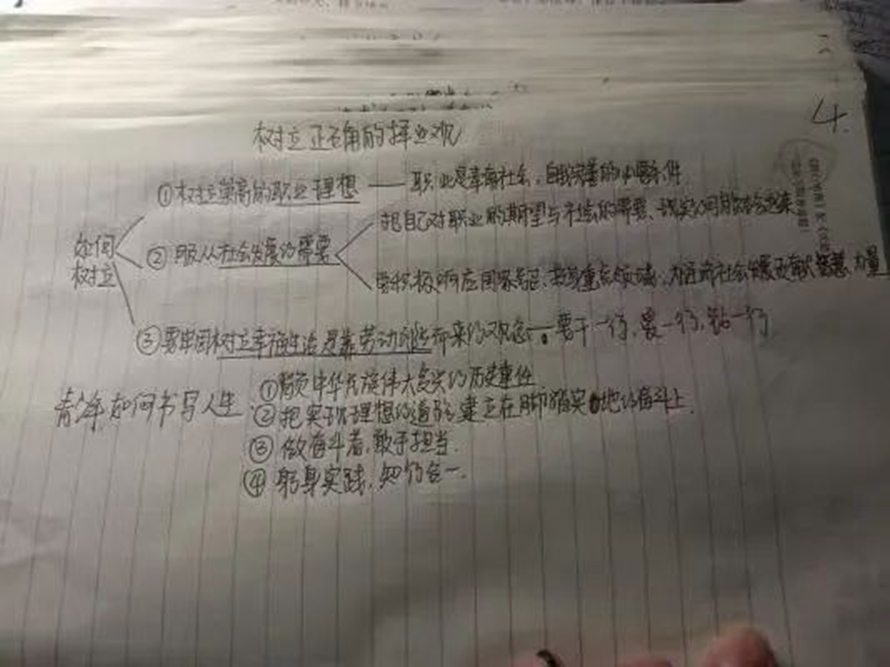 4.
树立正确的择业观
①树立崇高的职业理想 —— 职业是奉献社会、自我完善的必要条件.
把自己对职业的期望与社会的需要、现实的可能结合起来
如何树立 ②服从社会发展的需要
要积极响应国家号召、投身重点领域、为
③要牢固树立幸福生活是靠劳动创造而来的观念 — 要干一行,爱一行,钻一行.
①肩负中华民族伟大复兴的历史重任
青少年如何书写人生 ②把实现理想的道路建立在脚踏实地的奋斗上.
③做奋斗者,敢于担当.
④躬身实践,知行合一.